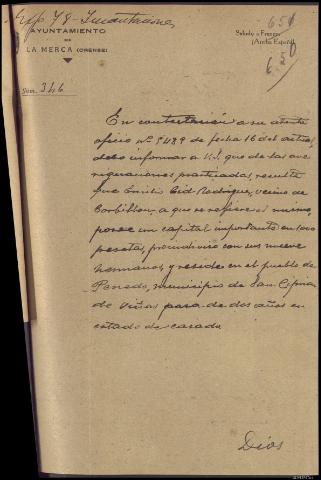 Exp 78 - Incautaciones
AYUNTAMIENTO
DE
LA MERCA (ORENSE)
Saludo a Franco:
¡Arriba España!
Núm. 346
En contestación a su atento
oficio nº 5489 de fecha 16 del actual,
debo informar a V.S. que de las ave
riguaciones practicadas, resulta
que Emilio Cid Rodríguez, vecino de
Corbillón, a que se refiere el mismo,
posee un capital importante en 1000
pesetas, proindiviso con sus nueve
hermanos, y reside en el pueblo de
Penedo, municipio de San Ciprian
de Viñas para de dos años en
estado de casado
Dios